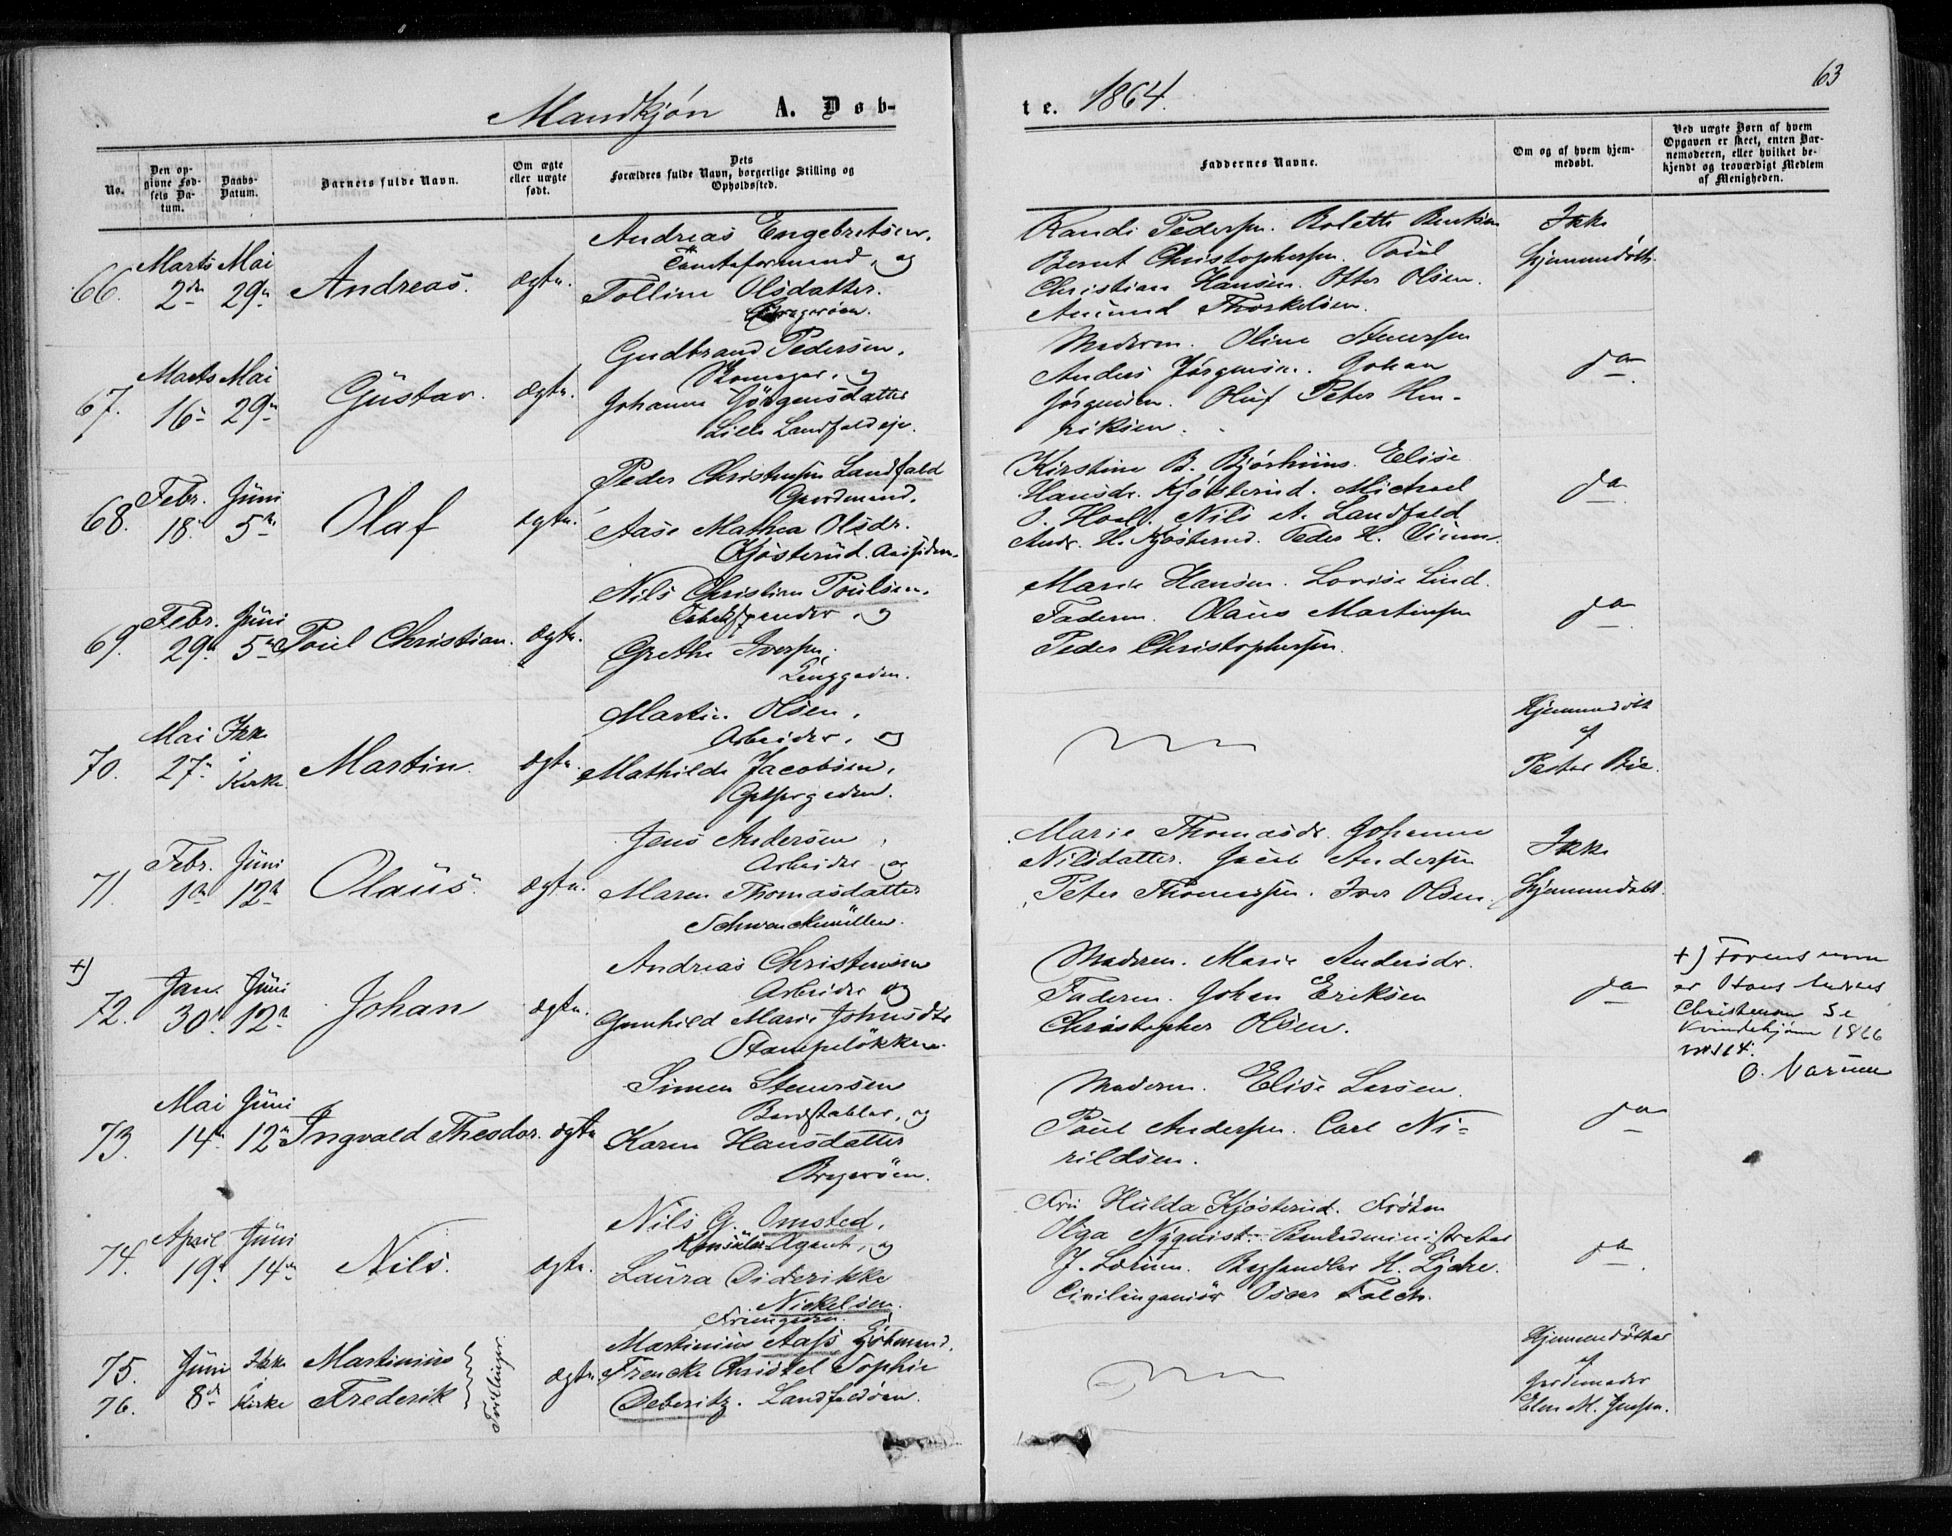 Mandkjøn A. Døb-
te. 1864. 63
No.
Den op-
givne Fød-
sels Da-
tum.
Daabs-
Datum.
Barnets fulde Navn.
Om ægte
eller uægte
født.
Dets
Forældres fulde Navn, borgerlige Stilling og
Opholdssted.
Faddernes Navne.
Om og af hvem hjem-
medøbt.
Ved uægte Børn af hvem
Opgaven er skeet, enten Bar-
nemoderen, eller hvilket be-
kjendt og troværdigt Medlem
af Menigheden.
66.
Marts
2den
Mai
29n
Andreas.
ægte.
Andreas Engebretsen,
Tomteformand, og
Tolline Olsdatter.
Bragerøen.
Randi Pedersen. Bolette Bentsen
Bernt Christophersen. Poul
Christian Hansen. Otter Olsen.
Amund Thorkelsen.
Ikke
hjemmedøbt.
67.
Marts
16n
Mai
29n
Gustav.
ægte.
Gudbrand Pedersen,
Skomager, og
Johanne Jörgensdatter
Lille Landfaldeje.
Moderen. Oline Steersen
Anders Jörgensen. Johan
Jörgensen. Oluf Peter Hen-
riksen.
do
68.
Febr.
18.
Juni
5te
Olaf
ægte.
Peder Christensen Landfald
Gaardmand.
Aase Mathea Olsdr.
Kjøsterud. Aassiden.
Kirstine B. Bjørhuus. Elise
Hansdr. Kjösterud. Michael
O. Hoel. Nils A. Landfald
Andr. H. Kjøsterud. Peder H.
do
69.
Febr.
29.
Juni
5te
Poul Christian.
ægte.
Nils Christian Poulsen,
Tobakspinder, og
Grethe Iversen,
Enggaden.
Marie Hansen. Lovise Lind.
Faderen. Olaus Martinsen
Peder Christophersen.
do
70.
Mai
27n
Ikke
i
Kirke
Martin.
ægte.
Martin Olsen,
Arbeider, og
Mathilde Jacobsen,
Hjemmedøbt
af
Pastor Bie.
71.
Febr.
1ste
Juni
12te
Olaus.
ægte.
Jens Andersen,
Arbeider og
Maren Thomasdatter
Schwenckmüllen.
Marie Thomasdr. Johanne
Nilsdatter. Jacob Andersen
Peter Thomassen. Iver Olsen
Ikke
hjemmedøbt.
+)
72.
Jan.
30.
Juni
12te
Johan
ægte.
Andreas Christensen
Arbeider og
Gunhild Marie Johnsdtr
Stampeløkken.
Moderen. Marie Andersdr.
Faderen. Johan Eriksen
Christopher Olsen.
do
+) Farens navn
er Hans Andreas
Christensen Se
Kvindekjønn 1866
nr 164.
73.
Mai
14n
Juni
12te
Ingvald Theodor.
ægte
Simen Steersen
Bordstabler, og
Karen Hansdatter
Bragerøen.
Moderen. Elise Larsen.
Poul Andersen. Carl Ni-
rildsen.
do
74.
April
19de
Juni
14n
Nils.
ægte.
Nils G. Omsted,
Konsular Agent, og
Laura Diderikke
Nickelsen.
Fru Hulda Kjøsterud. Frøken
Olga Nyquist. Bankadministrator
J. Lorum. Boghandler H. Lyche.
Civilingeniör Oscar Falch.
do
75.
76.
Juni
8de
Ikke
i
Kirke
Martinius
Frederik
Tvillinger.
ægte.
Martinius Aass Kjøbmand,
Frencke Christel Sophie
Deberitz. Landfaldøen.
Hjemmedøbte
af
Jordemoder
Elen M. Jensen.